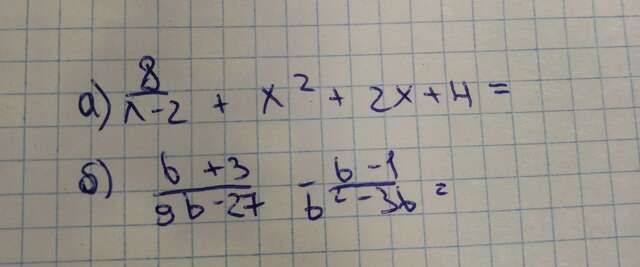 а) 8/(x-2) + x² + 2x + 4 =
б) (b+3)/(9b-27) - (b-1)/(b²-3b) =